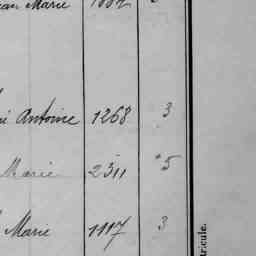 Marie
Antoine 1268 3
Marie 2311 5
Marie 1117 3
tricule.